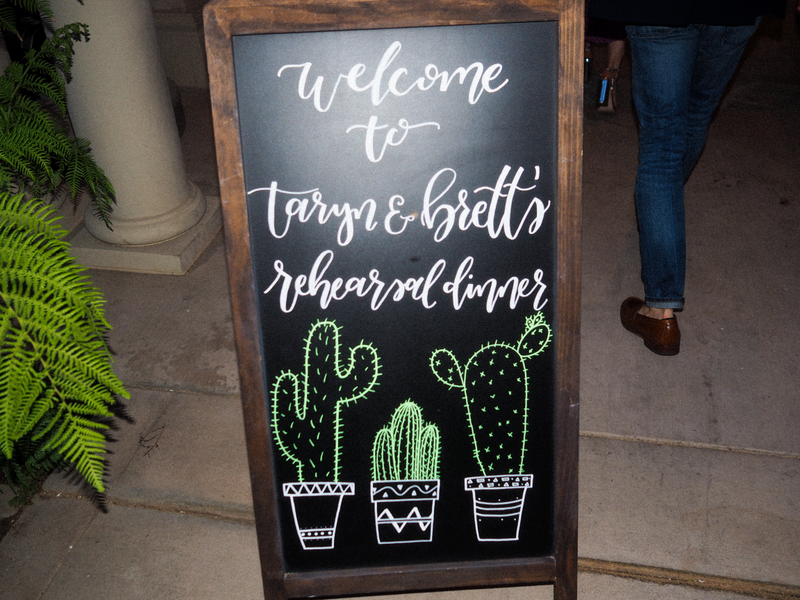 welcome
to
taryn & brett's
rehearsal dinner